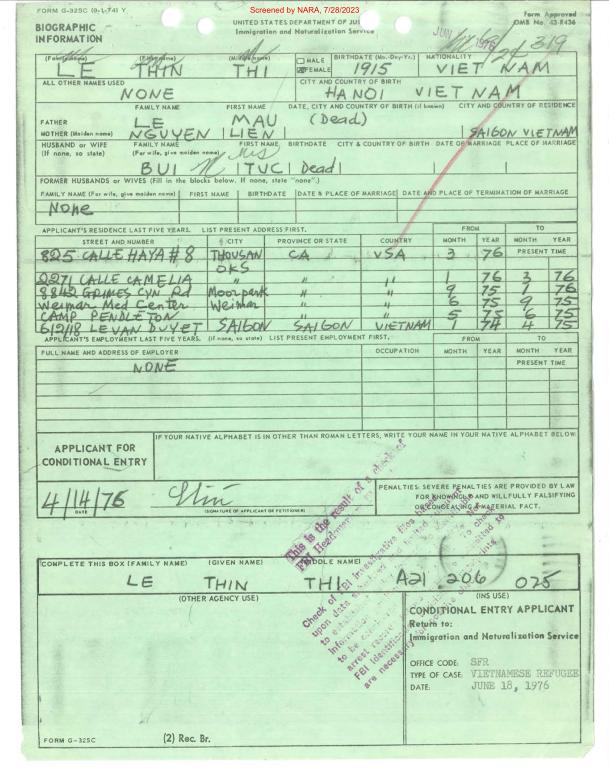 FORM G-325C (9-1-74) Y
Screened by NARA, 7/28/2023
Form Approved
OMB No. 43-R436
BIOGRAPHIC
INFORMATION
UNITED STATES DEPARTMENT OF
Immigration and Naturalization Service
JUN 1976
319
(Family name) (First name) (Middle name) MALE FEMALE BIRTHDATE (Mo.-Day-Yr.) NATIONALITY
LE THIN THI 1915 VIET NAM
ALL OTHER NAMES USED CITY AND COUNTRY OF BIRTH
NONE HANOI VIET NAM
FAMILY NAME FIRST NAME DATE, CITY AND COUNTRY OF BIRTH (if known) CITY AND COUNTRY OF RESIDENCE
FATHER LE MAU (Dead)
MOTHER (Maiden name) NGUYEN LIEN SAIGON VIETNAM
HUSBAND OR WIFE FAMILY NAME FIRST NAME BIRTHDATE CITY & COUNTRY OF BIRTH DATE OF MARRIAGE PLACE OF MARRIAGE
(If none, so state) (For wife, give maiden name)
BUI TUC Dead
FORMER HUSBANDS OR WIVES (Fill in the blocks below. If none, state "none".)
FAMILY NAME (For wife, give maiden name) FIRST NAME BIRTHDATE DATE & PLACE OF MARRIAGE DATE AND PLACE OF TERMINATION OF MARRIAGE
None
APPLICANT'S RESIDENCE LAST FIVE YEARS. LIST PRESENT ADDRESS FIRST. FROM TO
STREET AND NUMBER CITY PROVINCE OR STATE COUNTRY MONTH YEAR MONTH YEAR
825 CALLE HAYA #8 THOUSAN CA USA 3 76 PRESENT TIME
OKS
2271 CALLE CAMELIA " " " 1 76 3 76
8842 GRIMES CYN Rd Moorpark " " 9 75 1 76
Weimar Med Center Weimar " " 6 75 9 75
CAMP PENDLETON " " 5 75 6 75
612/18 LE VAN DUYET SAIGON SAIGON VIETNAM 1 74 4 75
APPLICANT'S EMPLOYMENT LAST FIVE YEARS. (If none, so state) LIST PRESENT EMPLOYMENT FIRST. FROM TO
FULL NAME AND ADDRESS OF EMPLOYER OCCUPATION MONTH YEAR MONTH YEAR
NONE PRESENT TIME
APPLICANT FOR
CONDITIONAL ENTRY
IF YOUR NATIVE ALPHABET IS IN OTHER THAN ROMAN LETTERS, WRITE YOUR NAME IN YOUR NATIVE ALPHABET BELOW:
4/14/76
DATE
(SIGNATURE OF APPLICANT OR PETITIONER)
PENALTIES: SEVERE PENALTIES ARE PROVIDED BY LAW
FOR KNOWINGLY AND WILLFULLY FALSIFYING
OR CONCEALING A MATERIAL FACT.
This is the result of a check of
FBI
Check of FBI investigative files
upon data
arrest
FBI Identification
are necessary
COMPLETE THIS BOX (FAMILY NAME) (GIVEN NAME) (MIDDLE NAME)
LE THIN THI A21 206 025
(OTHER AGENCY USE) (INS USE)
CONDITIONAL ENTRY APPLICANT
Return to:
Immigration and Naturalization Service
OFFICE CODE: SFR
TYPE OF CASE: VIETNAMESE REFUGEE
DATE: JUNE 18, 1976
FORM G-325C (2) Rec. Br.